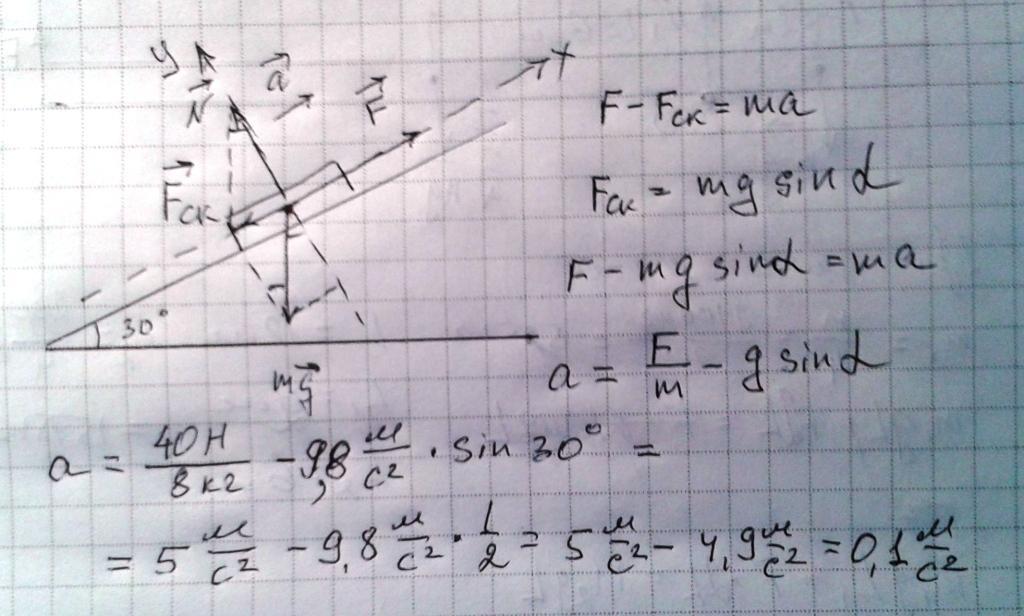 y
a⃗
N⃗
F⃗
x
F⃗ск
30°
mg⃗
F - Fск = ma
Fск = mg sin α
F - mg sin α = ma
a = F/m - g sin α
a = 40Н/8кг - 9,8 м/с² · sin 30° =
= 5 м/с² - 9,8 м/с² · 1/2 = 5 м/с² - 4,9 м/с² = 0,1 м/с²